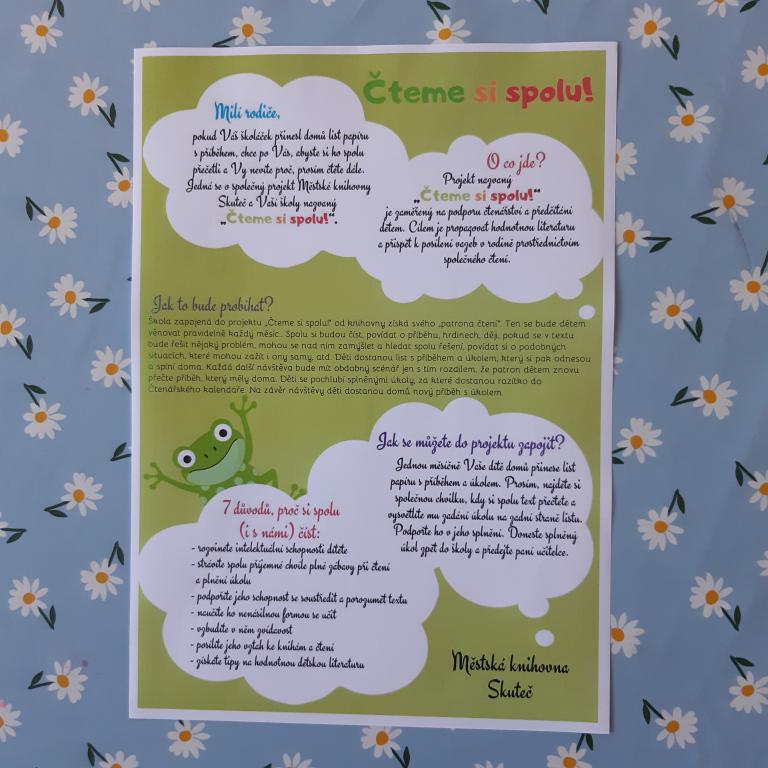 Čteme si spolu!
Milí rodiče,
pokud Váš školáček přinesl domů list papíru
s příběhem, chce po Vás, abyste si ho spolu
přečetli a Vy nevíte proč, prosím čtěte dále.
Jedná se o společný projekt Městské knihovny
Skuteč a Vaší školy nazvaný
„Čteme si spolu!“.
O co jde?
Projekt nazvaný
„Čteme si spolu!“
je zaměřený na podporu čtenářství a předčítání
dětem. Cílem je propagovat hodnotnou literaturu
a přispět k posílení vazeb v rodině prostřednictvím
společného čtení.
Jak to bude probíhat?
Škola zapojená do projektu „Čteme si spolu!“ od knihovny získá svého „patrona čtení“. Ten se bude dětem
věnovat pravidelně každý měsíc. Spolu si budou číst, povídat o příběhu, hrdinech, ději, pokud se v textu
bude řešit nějaký problém, mohou se nad ním zamýšlet a hledat spolu řešení, povídat si o podobných
situacích, které mohou zažít i ony samy, atd. Děti dostanou list s příběhem a úkolem, který si pak odnesou
a splní doma. Každá další návštěva bude mít obdobný scénář jen s tím rozdílem, že patron dětem znovu
přečte příběh, který měly doma. Děti se pochlubí splněnými úkoly, za které dostanou razítko do
Čtenářského kalendáře. Na závěr návštěvy děti dostanou domů nový příběh s úkolem.
Jak se můžete do projektu zapojit?
Jednou měsíčně Vaše dítě domů přinese list
papíru s příběhem a úkolem. Prosím, najděte si
společnou chvilku, kdy si spolu text přečtete a
vysvětlíte mu zadání úkolu na zadní straně listu.
Podpořte ho v jeho splnění. Doneste splněný
úkol zpět do školy a předejte paní učitelce.
7 důvodů, proč si spolu
(i s námi) číst:
- rozvinete intelektuální schopnosti dítěte
- strávíte spolu příjemné chvíle plné zábavy při čtení
a plnění úkolu
- podpoříte jeho schopnost se soustředit a porozumět textu
- naučíte ho nenásilnou formou se učit
- vzbudíte v něm zvídavost
- posílíte jeho vztah ke knihám a čtení
- získáte tipy na hodnotnou dětskou literaturu
Městská knihovna
Skuteč